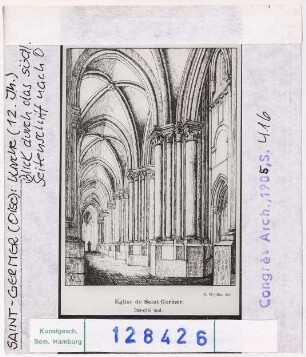 SAINT-GERMER (Oise): Kirche (12. Jh.)
Blick durch das südl.
Seitenschiff nach O
Eglise de Saint Germer.
Bas-côté sud.
Congrès Arch., 1905, S. 416
Kunstgesch.
Sem. Hamburg
128426